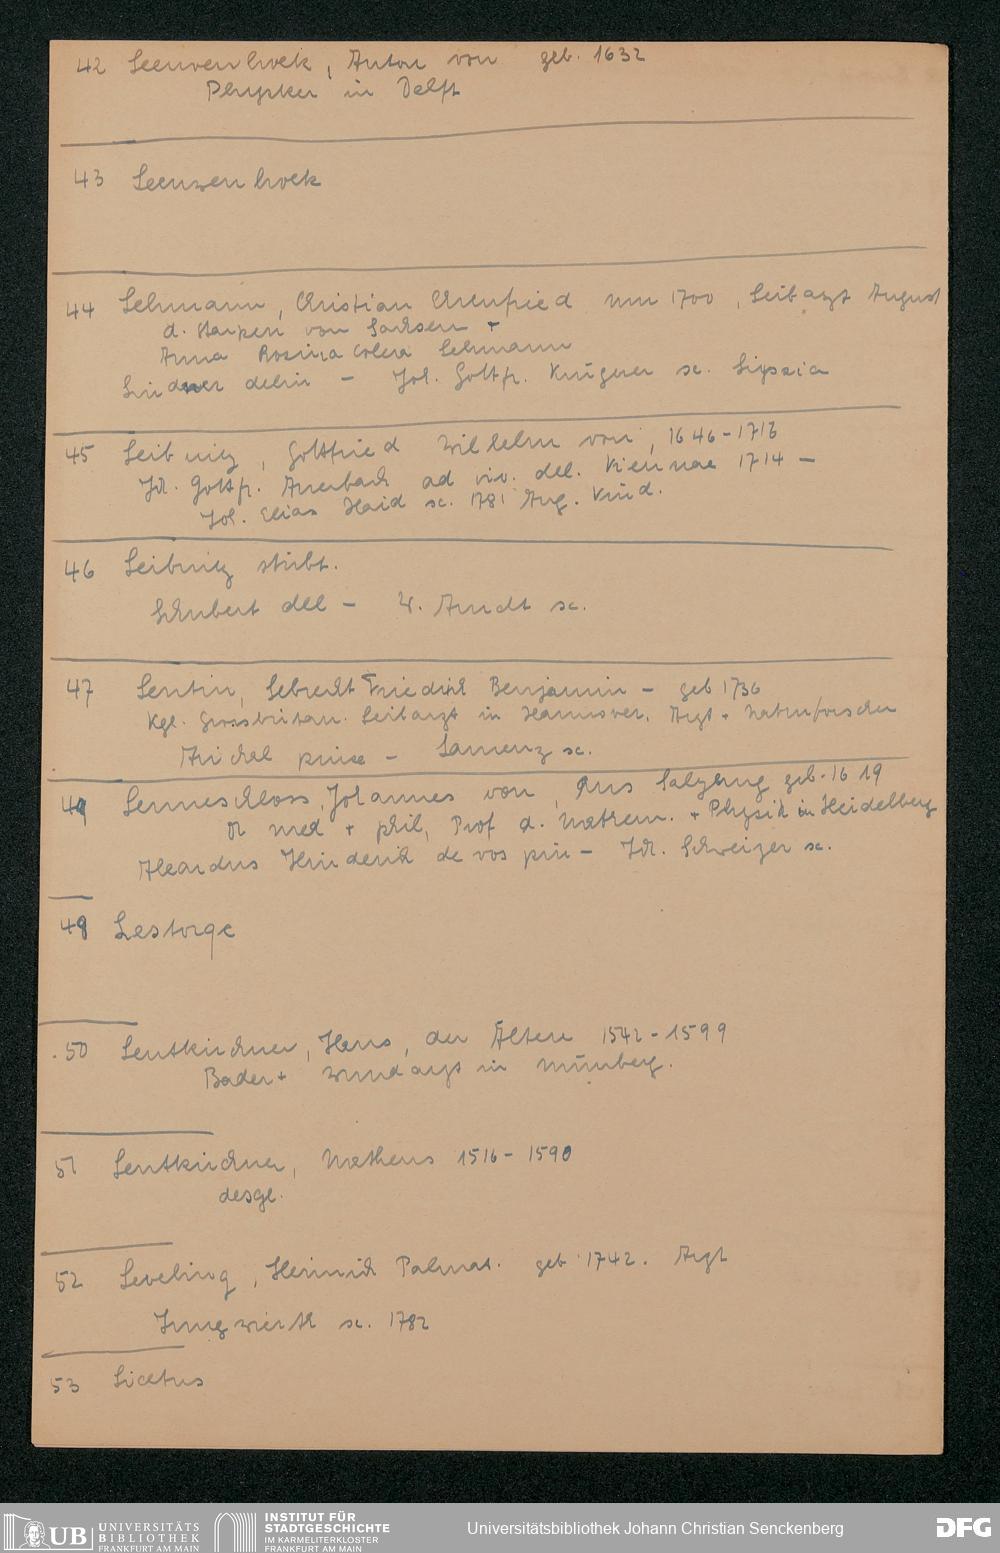 42 Leeuwenhoek, Anton von geb. 1632
Physiker in Delft
43 Leeuwenhoek
44 Lehmann, Christian Ehrenfried um 1700, Leibarzt August
d. Starken von Sachsen +
Anna Rosina Lehmann
Lindner delin – Joh. Gottfr. Krügner sc. Lipsia
45 Leibnitz, Gottfried Wilhelm von, 1646-1716
Joh. Gottfr. Auerbach ad viv. del. Viennae 1714 –
Joh. Elias Haid sc. 1781 Aug. Vind.
46 Leibnitz stirbt.
Schubert del – W. Arndt sc.
47 Lentin, Lebrecht Friedrich Benjamin – geb 1736
Kgl. Grossbritan. Leibarzt in Hannover. Arzt + Naturforscher
pinx – Lamenz sc.
Leuneschloss, Johannes von, Aus geb. 1619
Dr med + phil, Prof d. Mathem. + Physik in Heidelberg
de vos pin – Joh. Schweizer sc.
Lestorge
50 Leutkirchner, Hans, der Ältere 1542-1599
Bader + Wundarzt in Nürnberg.
51 Leutkirchner, Matheus 1516-1590
desgl.
52 Leveling, Heinrich Palmat. geb 1742. Arzt
Jungwierth sc. 1782
53 Licetus
UB UNIVERSITÄTS
BIBLIOTHEK
FRANKFURT AM MAIN
INSTITUT FÜR
STADTGESCHICHTE
IM KARMELITERKLOSTER
FRANKFURT AM MAIN
Universitätsbibliothek Johann Christian Senckenberg
DFG